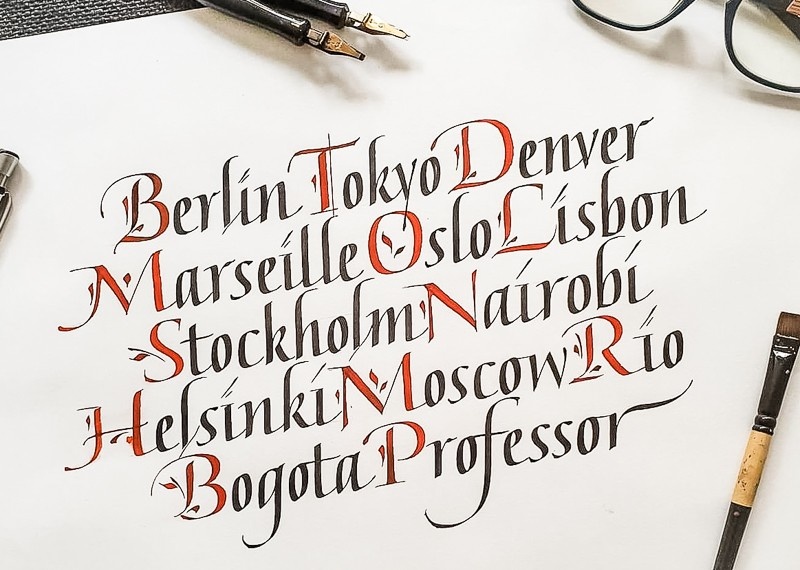 Berlin Tokyo Denver
Marseille Oslo Lisbon
Stockholm Nairobi
Helsinki Moscow Rio
Bogota Professor